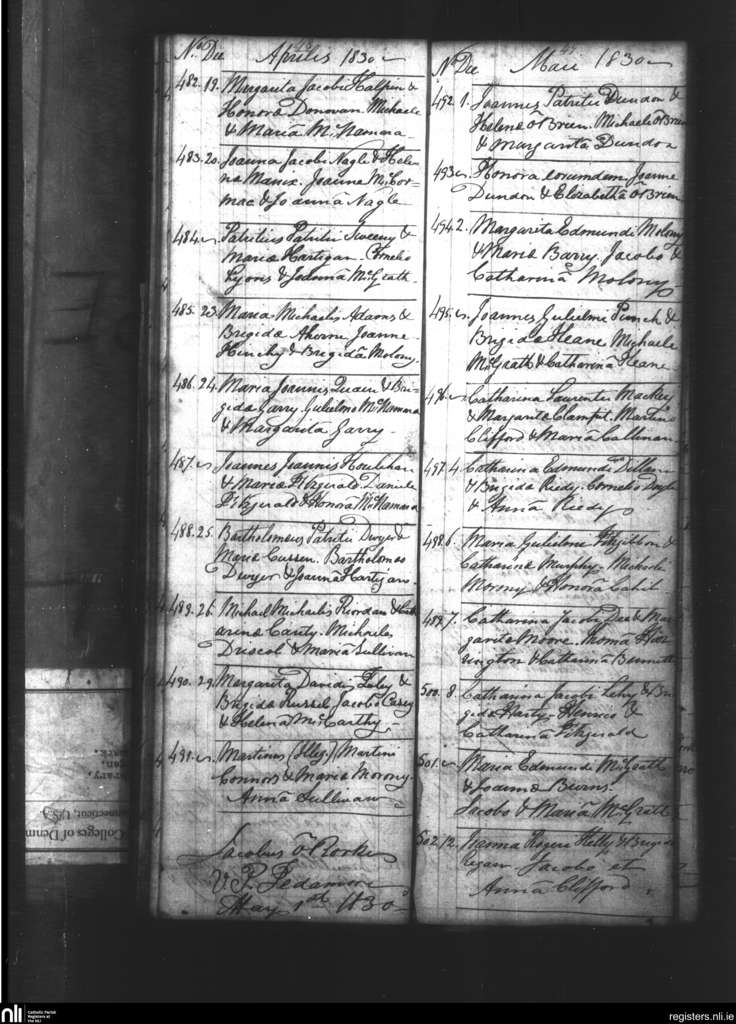 No. Die 43 Aprilis 1830
482. 19. Margarita Jacobi Halpin &
Honora Donovan. Michaele
& Maria McNamara
483. 20. Joanna Jacobi Nagle & Hele
na Manix. Joanna McCor-
mac & Joannâ Nagle
484. Patritius Patritii Sweeny &
Maria Hartigan. Cornelio
Lyons & Joannâ McGrath.
485. 23. Maria Michaelis Adams &
Brigida Aherne Joanne
Hinchy & Brigidâ Molony.
486. 24. Maria Joannis Quain & Bri-
gida Garry Gulielmo McNamara
& Margarita Garry.
487. Joannes Joannis Houlihan
& Maria Fitzgerald. Daniele
Fitzgerald & Honorâ McNamara
488. 25. Bartholomeus Patritii Dwyer &
Maria Cussen. Bartholomeo
Dwyer & Joannâ Hartigan.
489. 26. Michael Michaelis Riordan & Cath
arina Canty. Michaele
Driscol & Mariâ Sullivan
490. 29. Margarita Davidis Fahy &
Brigida Russel Jacobo Casey
& Helenâ McCarthy.
491. Martinus (Illeg.) Martini
Connors & Maria Morony.
Annâ Sullivan
Jacobus O'Rorke
P.P. Fedamore
May 1st 1830
No. Die Maii 1830
492. 1. Joannes Patritii Dundon &
Helena O'Brien. Michaele O'Brien
& Margaritâ Dundon
493. Honora eorumdem Joanne
Dundon & Elizabethâ O'Brien
494. 2. Margarita Edmundi Molony
& Maria Barry. Jacobo &
Catharinâ Molony
495. Joannes Gulielmi Punch &
Brigida Heane Michaele
McGrath & Catharinâ Heane.
496. Catharina Laurentii Mackey
& Margarita Clampet. Martino
Clifford & Mariâ Callinan.
497. 4. Catharina Edmundi Dillane
& Brigida Riedy. Cornelio Doyle
& Annâ Riedy
498. 6. Maria Gulielmi Fitzgibbon &
Catharina Murphy. Michaele
Morony & Honorâ Cahil
499. 7. Catharina Jacobi Dea & Mar
garita Moore. Thoma Har
rington & Catharinâ Bennett
500. 8. Catharina Jacobi Lehy & Bri
gida Harty. Henrico &
Catharinâ Fitzgerald
501. Maria Edmundi McGrath
& Joanna Burns.
Jacobo & Mariâ McGrath
502. 12. Joanna Rogeri Helly & Brigida
Regan. Jacobo et
Anna Clifford.
Colleges of Denm
onnecticut, USA
nli Catholic Parish
Registers at
the NLI
registers.nli.ie